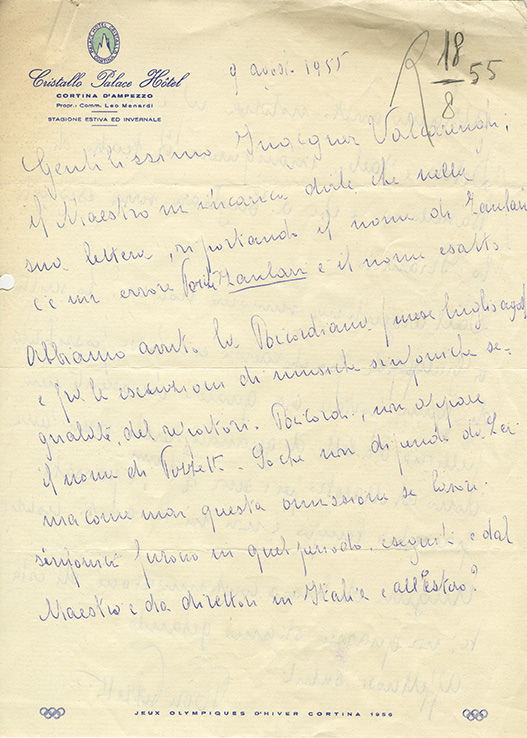 PALACE HOTEL CRISTALLO
CORTINA
Cristallo Palace Hôtel
CORTINA D'AMPEZZO
Propr.: Comm. Leo Menardi
STAGIONE ESTIVA ED INVERNALE
9 agost. 1955
R 18/8 55
Gentilissimo Ingegner Valcarenghi;
il Maestro m'incarica dirle che nella
sua lettera, riportando il nome di
c'è un errore è il nome esatto
Abbiamo avuto la Ricordiana mese luglio agosto
e fra le esecuzioni di musiche sinfoniche se-
gnalate, del repertorio Ricordi, non appare
il nome di Pizzetti - So che non dipende da Lei
ma come mai questa omissione se lavori
sinfonici furono in quel periodo, eseguiti e dal
Maestro e da direttori in Italia e all'Estero?
JEUX OLYMPIQUES D'HIVER CORTINA 1956